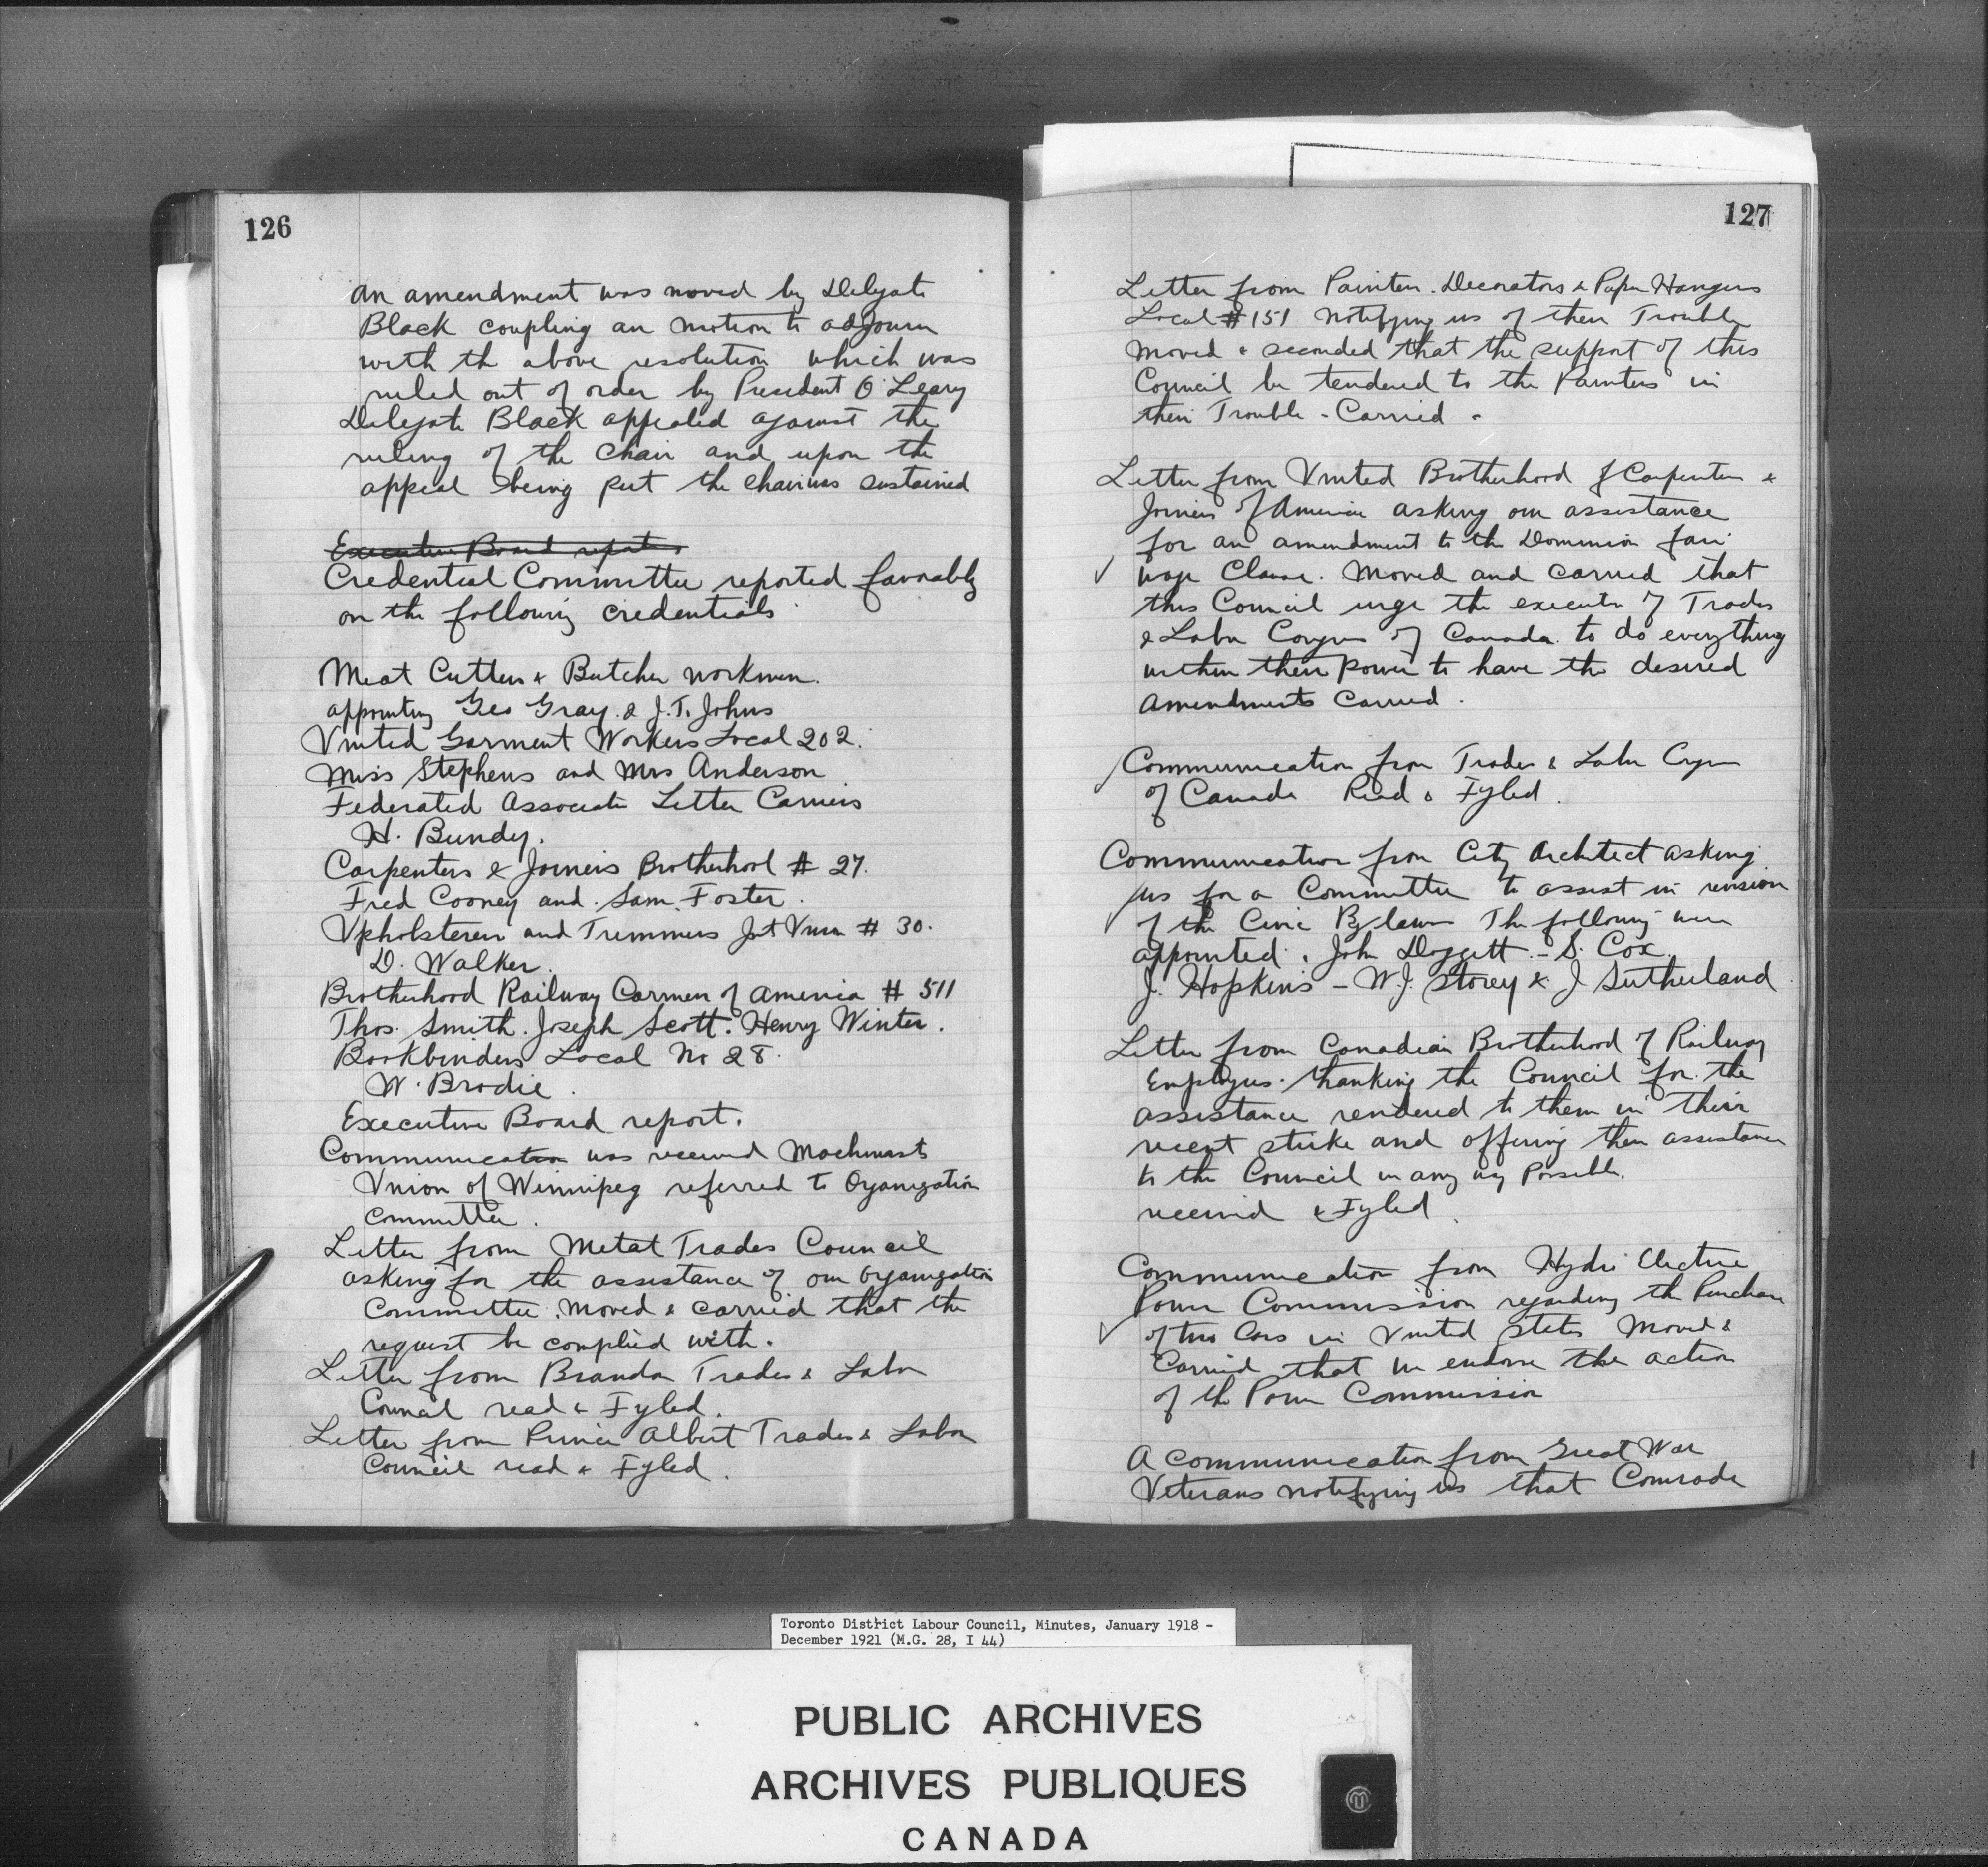 126
an amendment was moved by Delegate
Black coupling an motion to adjourn
with th above resolution which was
ruled out of order by President O'Leary
Delegate Black appealed against the
ruling of the Chair and upon the
appeal being put the Chair was sustained
Executive Board report.
Credential Committee reported favorably
on the following credentials
Meat Cutters & Butcher workmen.
appointing Geo Gray. & J. T. Johns
United Garment Workers Local 202.
Miss Stephens and Mrs Anderson
Federated Associate Letter Carriers
H. Bundy.
Carpenters & Joiners Brotherhood # 27.
Fred Cooney and Sam. Foster.
Upholsterers and Trimmers Int Union # 30.
D. Walker.
Brotherhood Railway Carmen of America # 511
Thos. Smith. Joseph Scott. Henry Winter.
Bookbinders Local No 28.
W. Brodie.
Executive Board report.
Communication was received Machinists
Union of Winnipeg referred to Organization
Committee.
Letter from Metal Trades Council
asking for the assistance of our organization
Committee. Moved & carried that the
request be complied with.
Letter from Brandon Trades & Labor
Council read & Fyled.
Letter from Prince Albert Trades & Labor
Council read & Fyled.
127
Letter from Painters. Decorators & Paper Hangers
Local # 151 notifying us of their Trouble
Moved & seconded that the support of this
Council be tendered to the Painters in
their Trouble - Carried -
Letter from United Brotherhood of Carpenters &
Joiners of America asking our assistance
for an amendment to the Dominion fair
wage Clause. Moved and carried that
this Council urge the executive of Trades
& Labor Congress of Canada to do everything
within their power to have the desired
amendments Carried.
Communication from Trades & Labor Congress
of Canada Read & Fyled.
Communication from City Architect asking
us for a Committee to assist in revision
of the Civic By laws The following were
appointed. John Doggett - S. Cox
J. Hopkins - W. J. Storey & J Sutherland
Letter from Canadian Brotherhood of Railway
Employees. thanking the Council for the
assistance rendered to them in their
recent strike and offering their assistance
to the Council in any way Possible.
received & Fyled
Communication from Hydro Electric
Power Commission regarding the Purchase
of two Cars in United States Moved &
Carried that we endorse the action
of the Power Commission
A communication from Great War
Veterans notifying us that Comrade
Toronto District Labour Council, Minutes, January 1918 -
December 1921 (M.G. 28, I 44)
PUBLIC ARCHIVES
ARCHIVES PUBLIQUES
CANADA